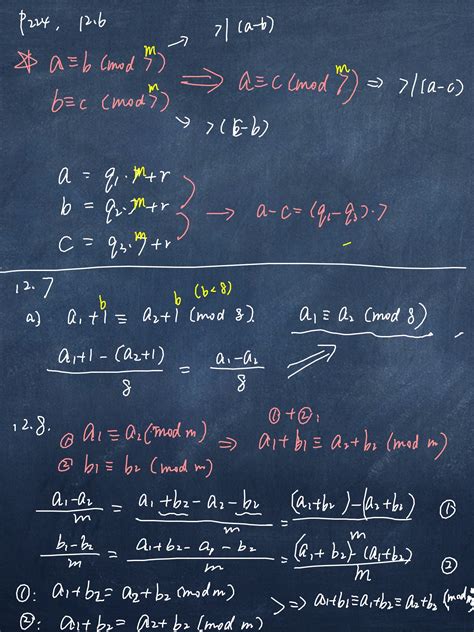 P224, 12.6
7|(a-b)
a≡b (mod 7) m ⟹ a≡c (mod 7) m ⇒ 7|(a-c)
b≡c (mod 7) m
7(c-b)
a = q₁·7+r m
b = q₂·7+r m → a-c=(q₁-q₃)·7
c = q₃·7+r m
12.7
a) a₁+1 b ≡ a₂+1 b (mod 8) (b<8) a₁≡a₂ (mod 8)
(a₁+1-(a₂+1))/8 = (a₁-a₂)/8
12.8. ①+②:
① a₁≡a₂(mod m) ⇒ a₁+b₁≡a₂+b₂ (mod m)
② b₁≡b₂ (mod m)
(a₁-a₂)/m = (a₁+b₂-a₂-b₂)/m = ((a₁+b₂)-(a₂+b₂))/m ①
(b₁-b₂)/m = (a₁+b₂-a₁-b₂)/m = ((a₁+b₂)-(a₁+b₂))/m ②
①: a₁+b₂=a₂+b₂ (mod m)
⇒ a₁+b₁≡a₁+b₂≡a₂+b₂ (mod
②: a₁+b₂=a₂+b₂ (mod m)